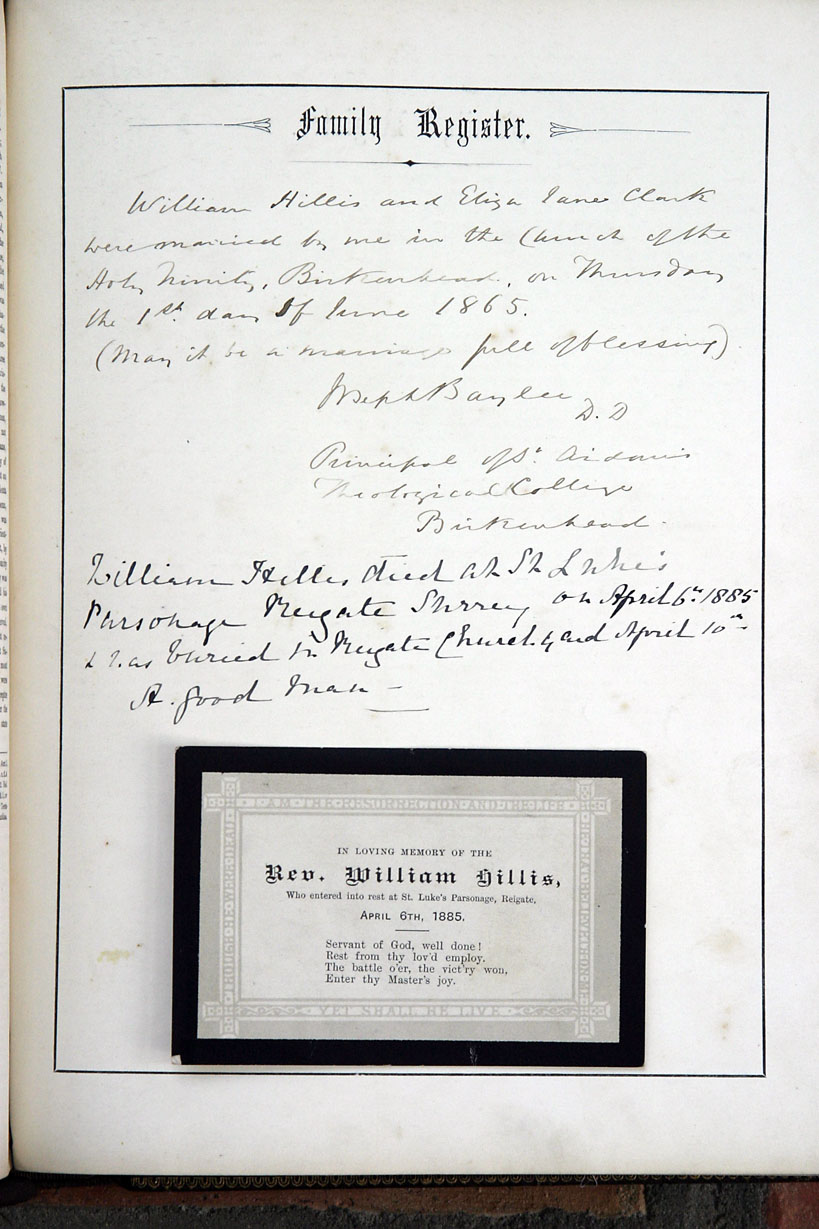 Family Register.
William Hillis and Eliza Jane Clark
were married by me in the Church of the
Holy Trinity, Birkenhead, on Thursday
the 1st day of June 1865.
(May it be a marriage full of blessing)
Joseph Baylee D.D
Principal of St. Aidan's
Theological College
Birkenhead.
William Hillis died at St Luke's
Parsonage Reigate Surrey on April 6th 1885
& was buried in Reigate Churchyard April 10th
A good man
I · AM · THE · RESURRECTION · AND · THE LIFE
THOUGH HE WERE DEAD
IN LOVING MEMORY OF THE
Rev. William Hillis,
Who entered into rest at St. Luke's Parsonage, Reigate,
APRIL 6TH, 1885.
Servant of God, well done!
Rest from thy lov'd employ.
The battle o'er, the vict'ry won,
Enter thy Master's joy.
YET SHALL HE LIVE